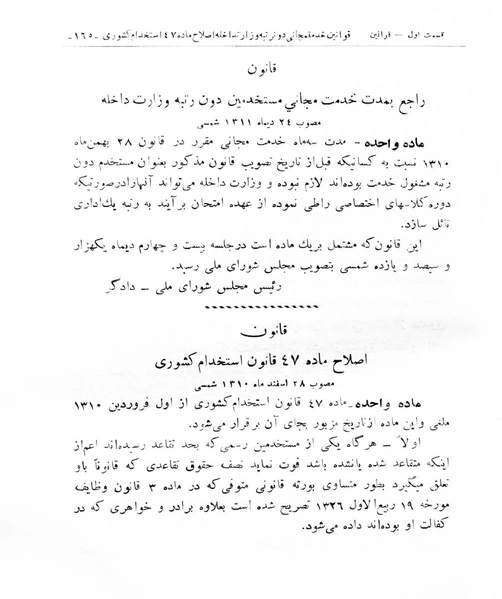 قسمت اول — قوانین قوانین خدمت مجانی دون رتبه وزارت داخله اصلاح ماده ۴۷ استخدام کشوری -۱٦٥-
قانون
راجع بمدت خدمت مجاني مستخدمین دون رتبه وزارت داخله
مصوب ۲۴ دیماه ۱۳۱۱ شمسی
ماده واحده - مدت سه‌ماه خدمت مجانی مقرر در قانون ۲۸ بهمن‌ماه
۱۳۱۰ نسبت به کسانیکه قبل از تاریخ تصویب قانون مذکور بعنوان مستخدم دون
رتبه مشغول خدمت بوده‌اند لازم نبوده و وزارت داخله می‌تواند آنهارا درصورتیکه
دوره کلاسهای اختصاصی راطی نموده از عهده امتحان برآیند به رتبه یك اداری
نائل سازد.
این قانون که مشتمل بریك ماده است درجلسه بیست و چهارم دیماه یکهزار
و سیصد و یازده شمسی بتصویب مجلس شورای ملی رسید.
رئیس مجلس شورای ملی ـ دادگر
قانون
اصلاح ماده ۴۷ قانون استخدام کشوری
مصوب ۲۸ اسفند ماه ۱۳۱۰ شمسی
ماده واحده ـ ماده ۴۷ قانون استخدام کشوری از اول فروردین ۱۳۱۰
ملغی واین ماده ازتاریخ مزبور بجای آن برقرار می‌شود.
اولاً ـ هرگاه یکی از مستخدمین رسمی که بحد تقاعد رسیده‌اند اعم‌از
اینکه متقاعد شده یانشده باشد فوت نماید نصف حقوق تقاعدی که قانوناً باو
تعلق میگیرد بطور متساوی بورثه قانونی متوفی‌که در ماده ۳ قانون وظایف
مورخه ۱۹ ربیع‌الاول ۱۳۲٦ تصریح شده است بعلاوه برادر و خواهری که در
کفالت او بوده‌اند داده می‌شود.